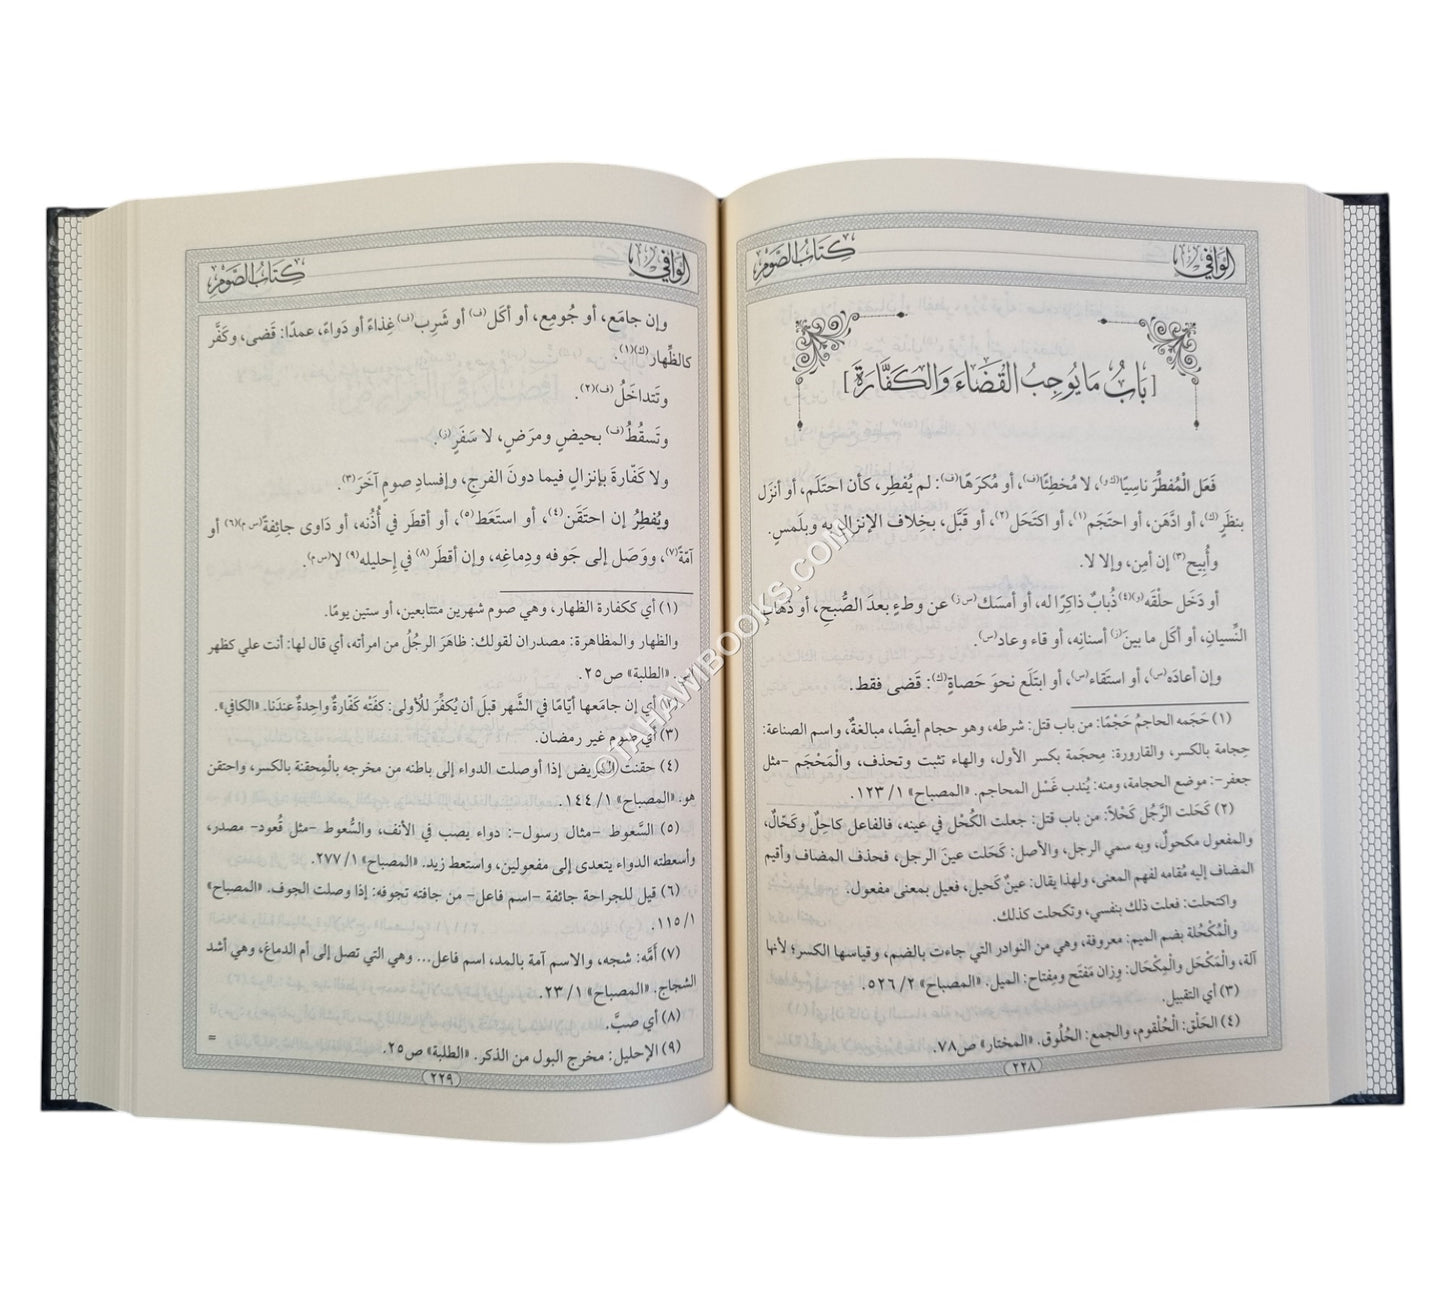 الوافي
كتاب الصوم
[باب ما يوجب القضاء والكفارة]
فَعَل الْمُفطِّرَ ناسِيًا(ك و)، لا مُخطِئًا(ف)، أو مُكرَهًا(ف): لم يُفطِر، كأن احتَلَم، أو أنزَل
بنظَرٍ(ك)، أو ادَّهَن، أو احتَجَم(١)، أو اكتَحَل(٢)، أو قَبَّل، بخِلاف الإنزال به وبلَمسٍ.
وأُبِيح(٣) إن أمِن، وإلا لا.
أو دَخَل حلْقَه(و)(٤) ذُبابٌ ذاكِرًا له، أو أمسَك(س ز) عن وطءٍ بعدَ الصُّبحِ، أو ذَهاب
النِّسيانِ، أو أكَل ما بينَ(ز) أسنانِه، أو قاء وعاد(س).
وإن أعادَه(س)، أو استَقاء(س)، أو ابتَلَع نحوَ حَصاةٍ(ك): قَضى فقط.
(١) حَجَمه الحاجمُ حَجْمًا: من باب قتل: شرطه، وهو حجام أيضًا، مبالغةٌ، واسم الصناعة:
حِجامة بالكسر، والقارورة: مِحجَمة بكسر الأول، والهاء تثبت وتحذف، والْمَحْجَم -مثل
جعفر-: موضع الحجامة، ومنه: يُندب غَسْل المحاجم. «المصباح» ١/ ١٢٣.
(٢) كَحَلت الرَّجُل كَحْلاً: من باب قتل: جعلت الكُحْل في عينه، فالفاعل كاحِلٌ وكَحّالٌ،
والمفعول مكحولٌ، وبه سمي الرجل، والأصل: كَحَلت عينَ الرجل، فحذف المضاف وأقيم
المضاف إليه مُقامه لفهم المعنى، ولهذا يقال: عينٌ كَحيل، فعيل بمعنى مفعول.
واكتحلت: فعلت ذلك بنفسي، وتكحلت كذلك.
والْمُكْحُلة بضم الميم: معروفة، وهي من النوادر التي جاءت بالضم، وقياسها الكسر؛ لأنها
آلة، والْمَكْحَل والْمِكْحَال: وِزان مَفتَح ومِفتاح: الميل. «المصباح» ٢/ ٥٢٦.
(٣) أي التقبيل.
(٤) الحَلْق: الْحُلْقوم، والجمع: الحُلُوق. «المختار» ص٧٨.
٢٢٨
الوافي
كتاب الصوم
وإن جامَع، أو جُومِع، أو أكَل(ف) أو شَرِب(ف) غِذاءً أو دَواءً، عمدًا: قَضى، وكَفَّر
كالظِّهار(ك)(١).
وتَتداخَلُ(ف)(٢).
وتَسقُطُ(ف) بحيضٍ ومرَضٍ، لا سَفَرٍ(ز).
ولا كَفّارةَ بإنزالٍ فيما دونَ الفرجِ، وإفسادِ صومٍ آخَرَ(٣).
ويُفطِرُ إن احتَقَن(٤)، أو استَعَط(٥)، أو أقطَر في أُذُنه، أو دَاوى جائِفةً(س م)(٦) أو
آمّةً(٧)، ووَصَل إلى جَوفه ودِماغِه، وإن أقطَر(٨) في إحليله(٩) لا(س م).
(١) أي ككفارة الظهار، وهي صوم شهرين متتابعين، أو ستين يومًا.
والظهار والمظاهرة: مصدران لقولك: ظاهَرَ الرجُلُ من امرأته، أي قال لها: أنت علي كظهر
«الطلبة» ص٢٥.
(٢) أي إن جامَعها أيّامًا في الشَّهر قبلَ أن يُكفِّرَ للأولى: كفَتْه كَفّارةٌ واحِدةٌ عندَنا. «الكافي».
(٣) أي صوم غير رمضان.
(٤) حقنت المريض إذا أوصلت الدواء إلى باطنه من مخرجه بالْمِحقنة بالكسر، واحتقن
هو. «المصباح» ١/ ١٤٤.
(٥) السَّعوط -مثال رسول-: دواء يصب في الأنف، والسُّعوط -مثل قُعود- مصدر،
وأسعطته الدواء يتعدى إلى مفعولين، واستعط زيد. «المصباح» ١/ ٢٧٧.
(٦) قيل للجراحة جائفة -اسم فاعل- من جافته تجوفه: إذا وصلت الجوف. «المصباح»
١/ ١١٥.
(٧) أَمَّه: شجه، والاسم آمة بالمد، اسم فاعل... وهي التي تصل إلى أم الدماغ، وهي أشد
الشجاج. «المصباح» ١/ ٢٣.
(٨) أي صبَّ.
(٩) الإحليل: مخرج البول من الذكر. «الطلبة» ص٢٥.
=
٢٢٩
©TAHAWIBOOKS.COM